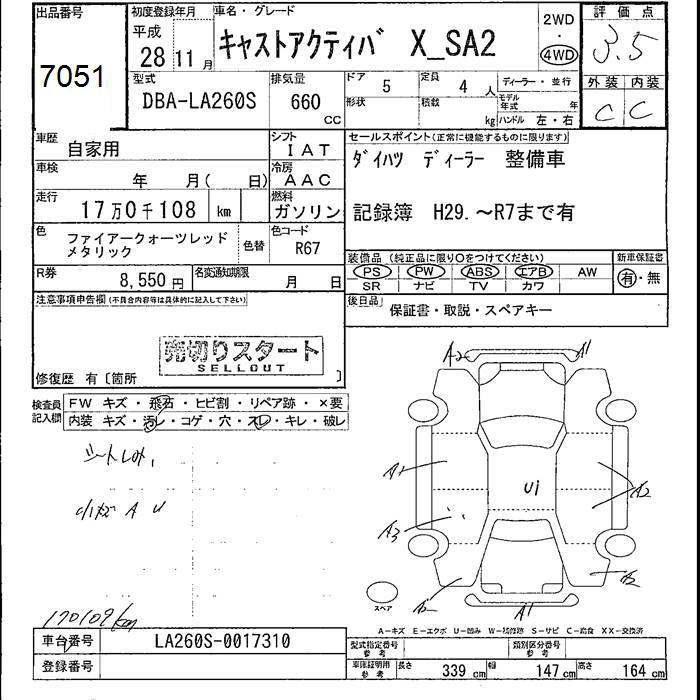 出品番号 初度登録年月 車名・グレード 2WD 評価点
7051 平成 28 11月 キャストアクティバ X_SA2 ・ 4WD 3.5
型式 排気量 ドア 5 定員 4人 ディーラー・並行 外装 内装
DBA-LA260S 660 CC 形状 積載 kg モデル年式 年 ハンドル 左・右 C C
車歴 自家用 シフト IAT セールスポイント(正常に機能するものに限ります)
車検 年 月( 日) 冷房 AAC ダイハツ ディーラー 整備車
走行 17万0千108 km 燃料 ガソリン 記録簿 H29.~R7まで有
色 ファイアークォーツレッド 色替 色コード R67
メタリック
装備品(純正品に限り○をつけてください) 新車保証書
PS PW ABS エアB AW 有・無
SR ナビ TV カワ
R券 8,550円 名変通知期限 月 日
後日品 保証書・取説・スペアキー
注意事項申告欄(不具合内容等は具体的に記入して下さい)
売切りスタート
SELLOUT
修復歴 有〔箇所 〕
検査員記入欄 FW キズ・飛石・ヒビ割・リペア跡・×要
内装 キズ・汚レ・コゲ・穴・スレ・キレ・破レ
シートしみ,
小キズ A U
A2 A1
A1 U1 A2
A3
A1
スペア
170109km
A-キズ E-エクボ U-凹み W-補修跡 S-サビ C-腐食 XX-交換済
車台番号 LA260S-0017310 型式指定番号 参考 類別区分番号 参考
登録番号 車庫証明用 参考 長さ 339cm 幅 147cm 高さ 164cm